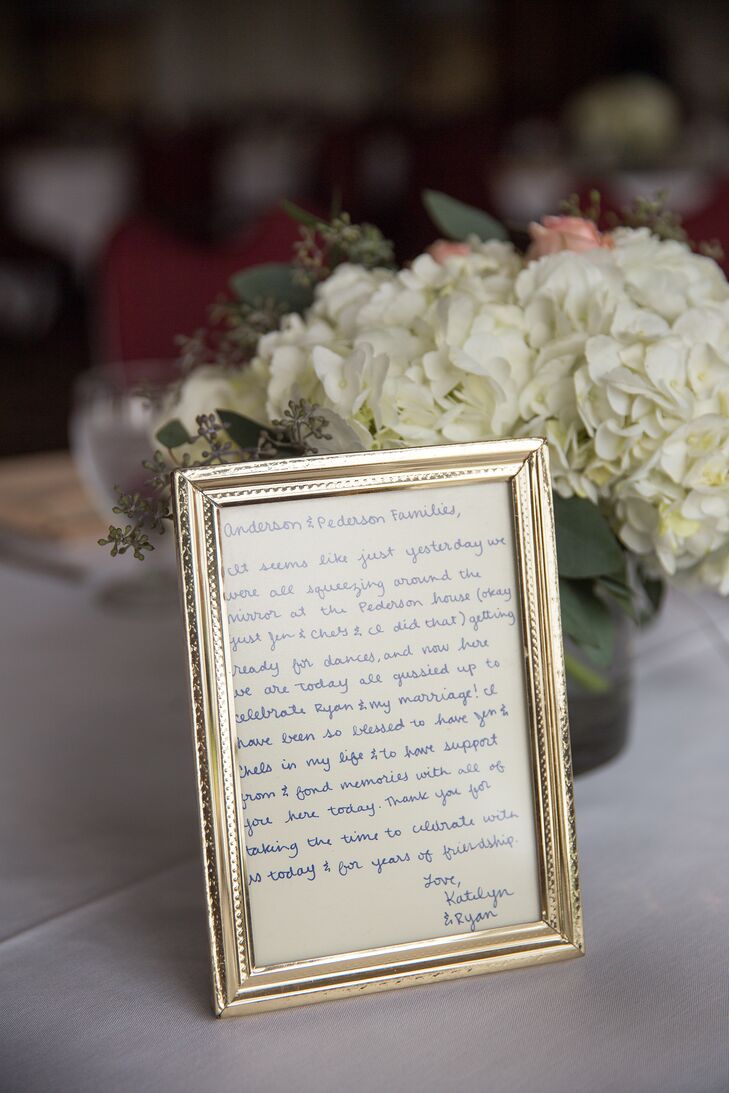 Anderson & Pederson Families,
It seems like just yesterday we
were all squeezing around the
mirror at the Pederson house (okay
just Jen & Chels & I did that) getting
ready for dances, and now here
we are today all gussied up to
celebrate Ryan & my marriage! I
have been so blessed to have Jen &
Chels in my life & to have support
from & fond memories with all of
you here today. Thank you for
taking the time to celebrate with
us today & for years of friendship.
Love,
Katelyn
& Ryan